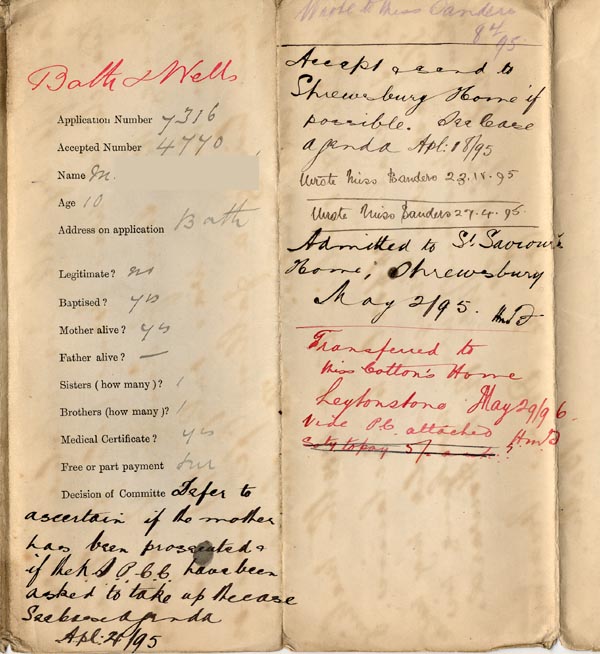 Bath & Wells
Application Number 7316
Accepted Number 4770
Name M.
Age 10
Address on application Bath
Legitimate? no
Baptised? yes
Mother alive? yes
Father alive? —
Sisters (how many)? 1
Brothers (how many)? 1
Medical Certificate? yes
Free or part payment
Decision of Committe Defer to
ascertain if the mother
has been prosecuted &
if the N.S.P.C.C. have been
asked to take up the case
See case agenda
Apl: 4/95
Wrote to Miss Sanders
8 4/95
Accept & send to
Shrewsbury Home if
possible. See Case
agenda Apl: 18/95
Wrote Miss Sanders 23.4.95
Wrote Miss Sanders 27.4.95
Admitted to St Saviour's
Home, Shrewsbury
May 2/95.
Transferred to
Miss Cotton's Home
Leytonstone May 29/96.
Vide P.C. attached
to pay 5/-